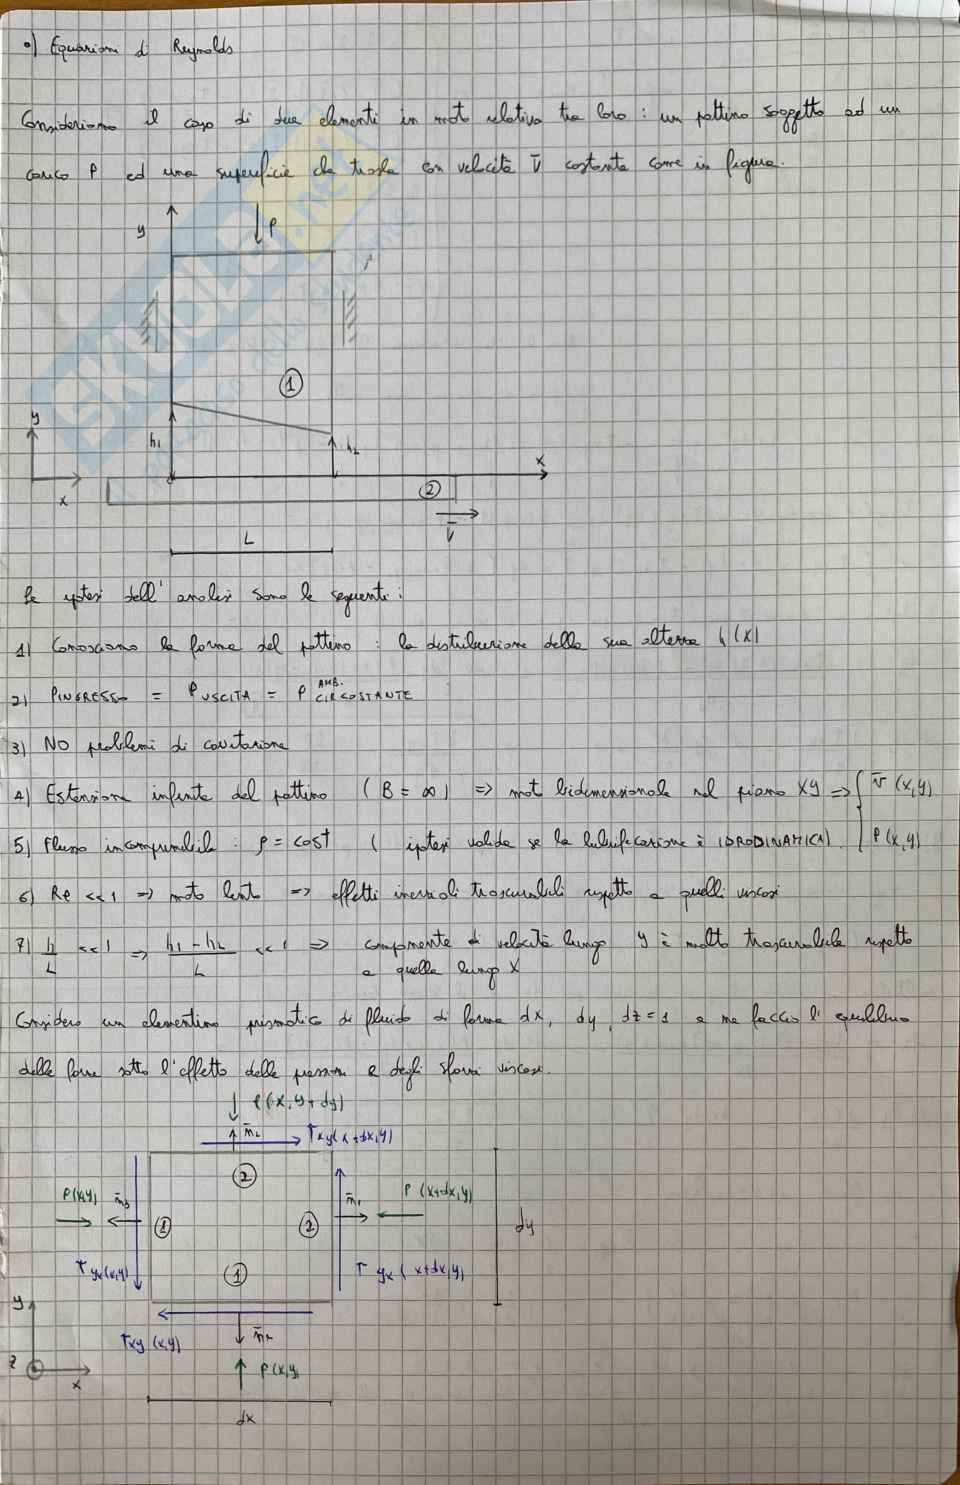 •) Equazioni di Reynolds
Consideriamo il caso di due elementi in moto relativo tra loro : un pattino soggetto ad un
carico P ed una superficie che trasla con velocità V̄ costante come in figura.
y
P
SKUOLA.net
1
y
h1
h2
x
x
2
V̄
L
Le ipotesi dell'analisi sono le seguenti :
1) Conosciamo la forma del pattino : la distribuzione della sua altezza h(x)
2) PINGRESSO = PUSCITA = P AMB. CIRCOSTANTE
3) NO problemi di cavitazione
4) Estensione infinita del pattino ( B = ∞ ) => moto bidimensionale nel piano XY => { v̄ (x,y)
5) Fluido incomprimibile : ρ = cost ( ipotesi valida se la lubrificazione è IDRODINAMICA). P(x,y)
6) Re << 1 => moto lento => effetti inerziali trascurabili rispetto a quelli viscosi
7) h/L << 1 => h1 - h2 / L << 1 => componente di velocità lungo y è molto trascurabile rispetto
a quella lungo X
Considero un elementino prismatico di fluido di forma dx, dy, dz = 1 e ne faccio l'equilibrio
delle forze sotto l'effetto delle pressioni e degli sforzi viscosi.
P(x, y + dy)
n̄2
τxy(x+dx,y)
2
P(x,y)
n̄3
n̄1
P (x+dx,y)
1
2
dy
τyx(x,y)
1
τyx (x+dx,y)
y
τxy (x,y)
P(x,y)
z
x
dx